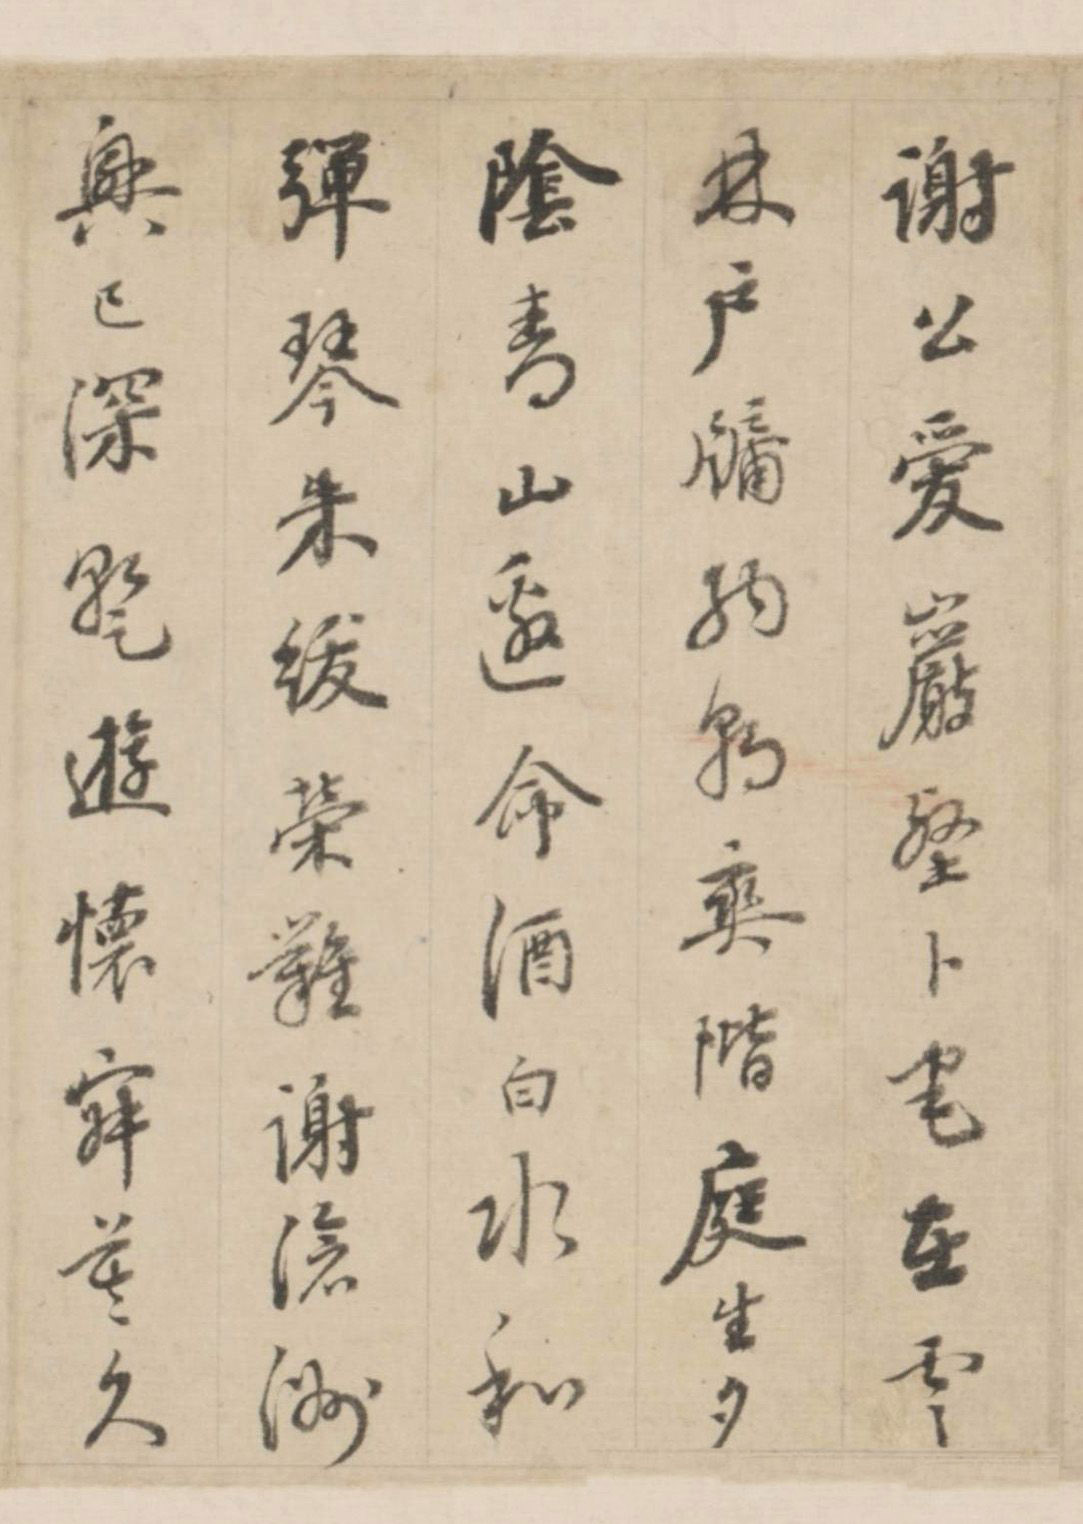 謝公愛巖壑卜宅在雲
林戶牖納朝爽階庭生夕
陰青山邀命酒白水和
彈琴朱綬榮難謝滄洲
興已深遊懷久